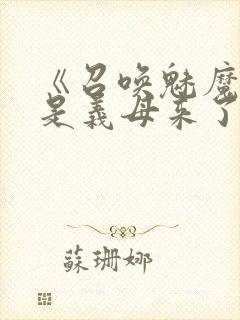 《召喚魅魔
是義母來了
蘇珊娜